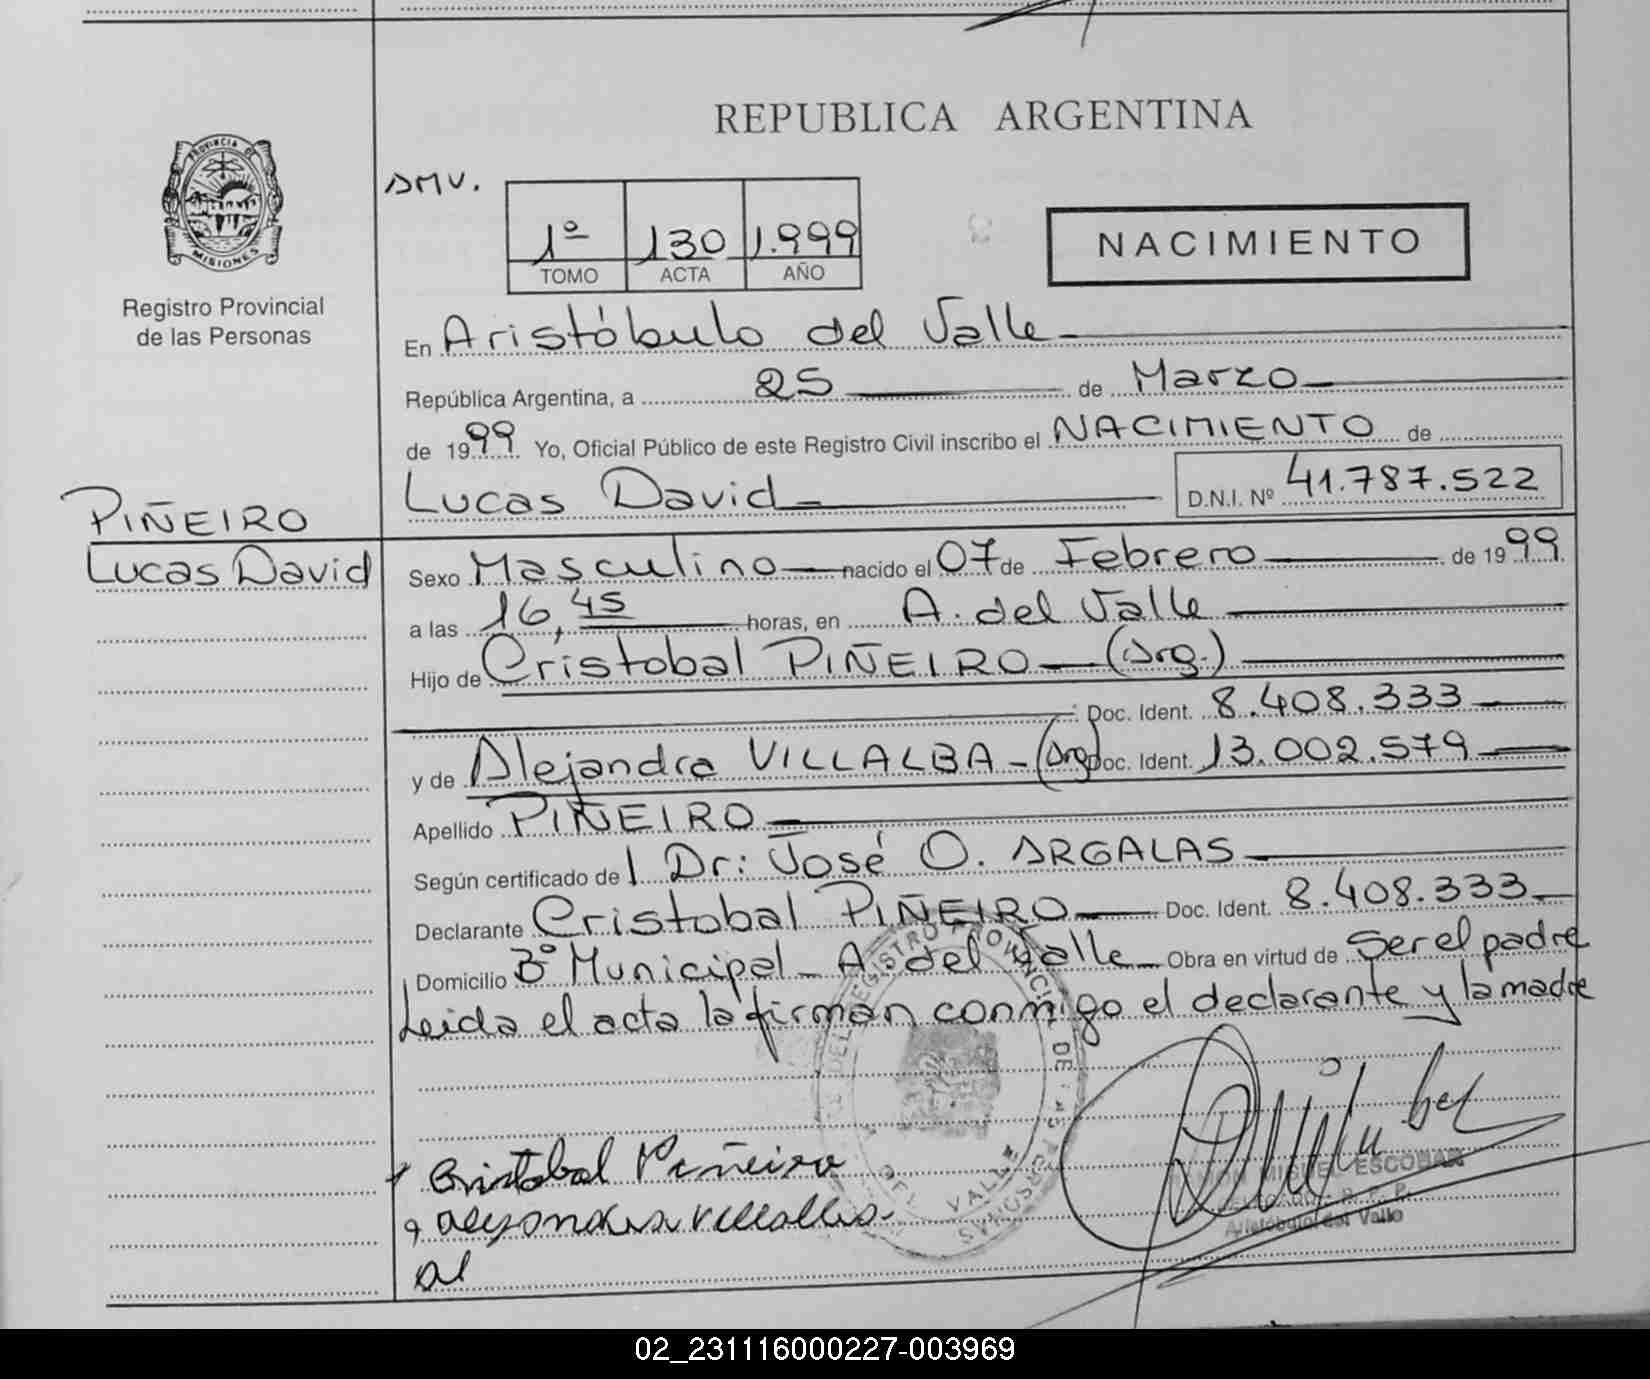 REPUBLICA ARGENTINA
PROVINCIA DE
MISIONES
Registro Provincial
de las Personas
AMV.
1º 130 1.999
TOMO ACTA AÑO
NACIMIENTO
En Aristóbulo del Valle
República Argentina, a 25 de Marzo
de 1999 Yo, Oficial Público de este Registro Civil inscribo el NACIMIENTO de
Lucas David D.N.I. Nº 41.787.522
PIÑEIRO
Lucas David
Sexo Masculino nacido el 07 de Febrero de 1999
a las 16,45 horas, en A. del Valle
Hijo de Cristobal PIÑEIRO (Arg.)
Doc. Ident. 8.408.333
y de Alejandra VILLALBA - (Arg) Doc. Ident. 13.002.579
Apellido PIÑEIRO
Según certificado de l Dr: José O. ARGALAS
Declarante Cristobal PIÑEIRO Doc. Ident. 8.408.333
Domicilio Bº Municipal - A. del Valle Obra en virtud de Ser el padre
Leida el acta la firman conmigo el declarante y la madre
REGISTRO PROVINCIAL DE LAS PERSONAS
DEL VALLE
Cristobal Piñeiro
MIGUEL ESCOBAR
Aristóbulo del Valle
02_231116000227-003969